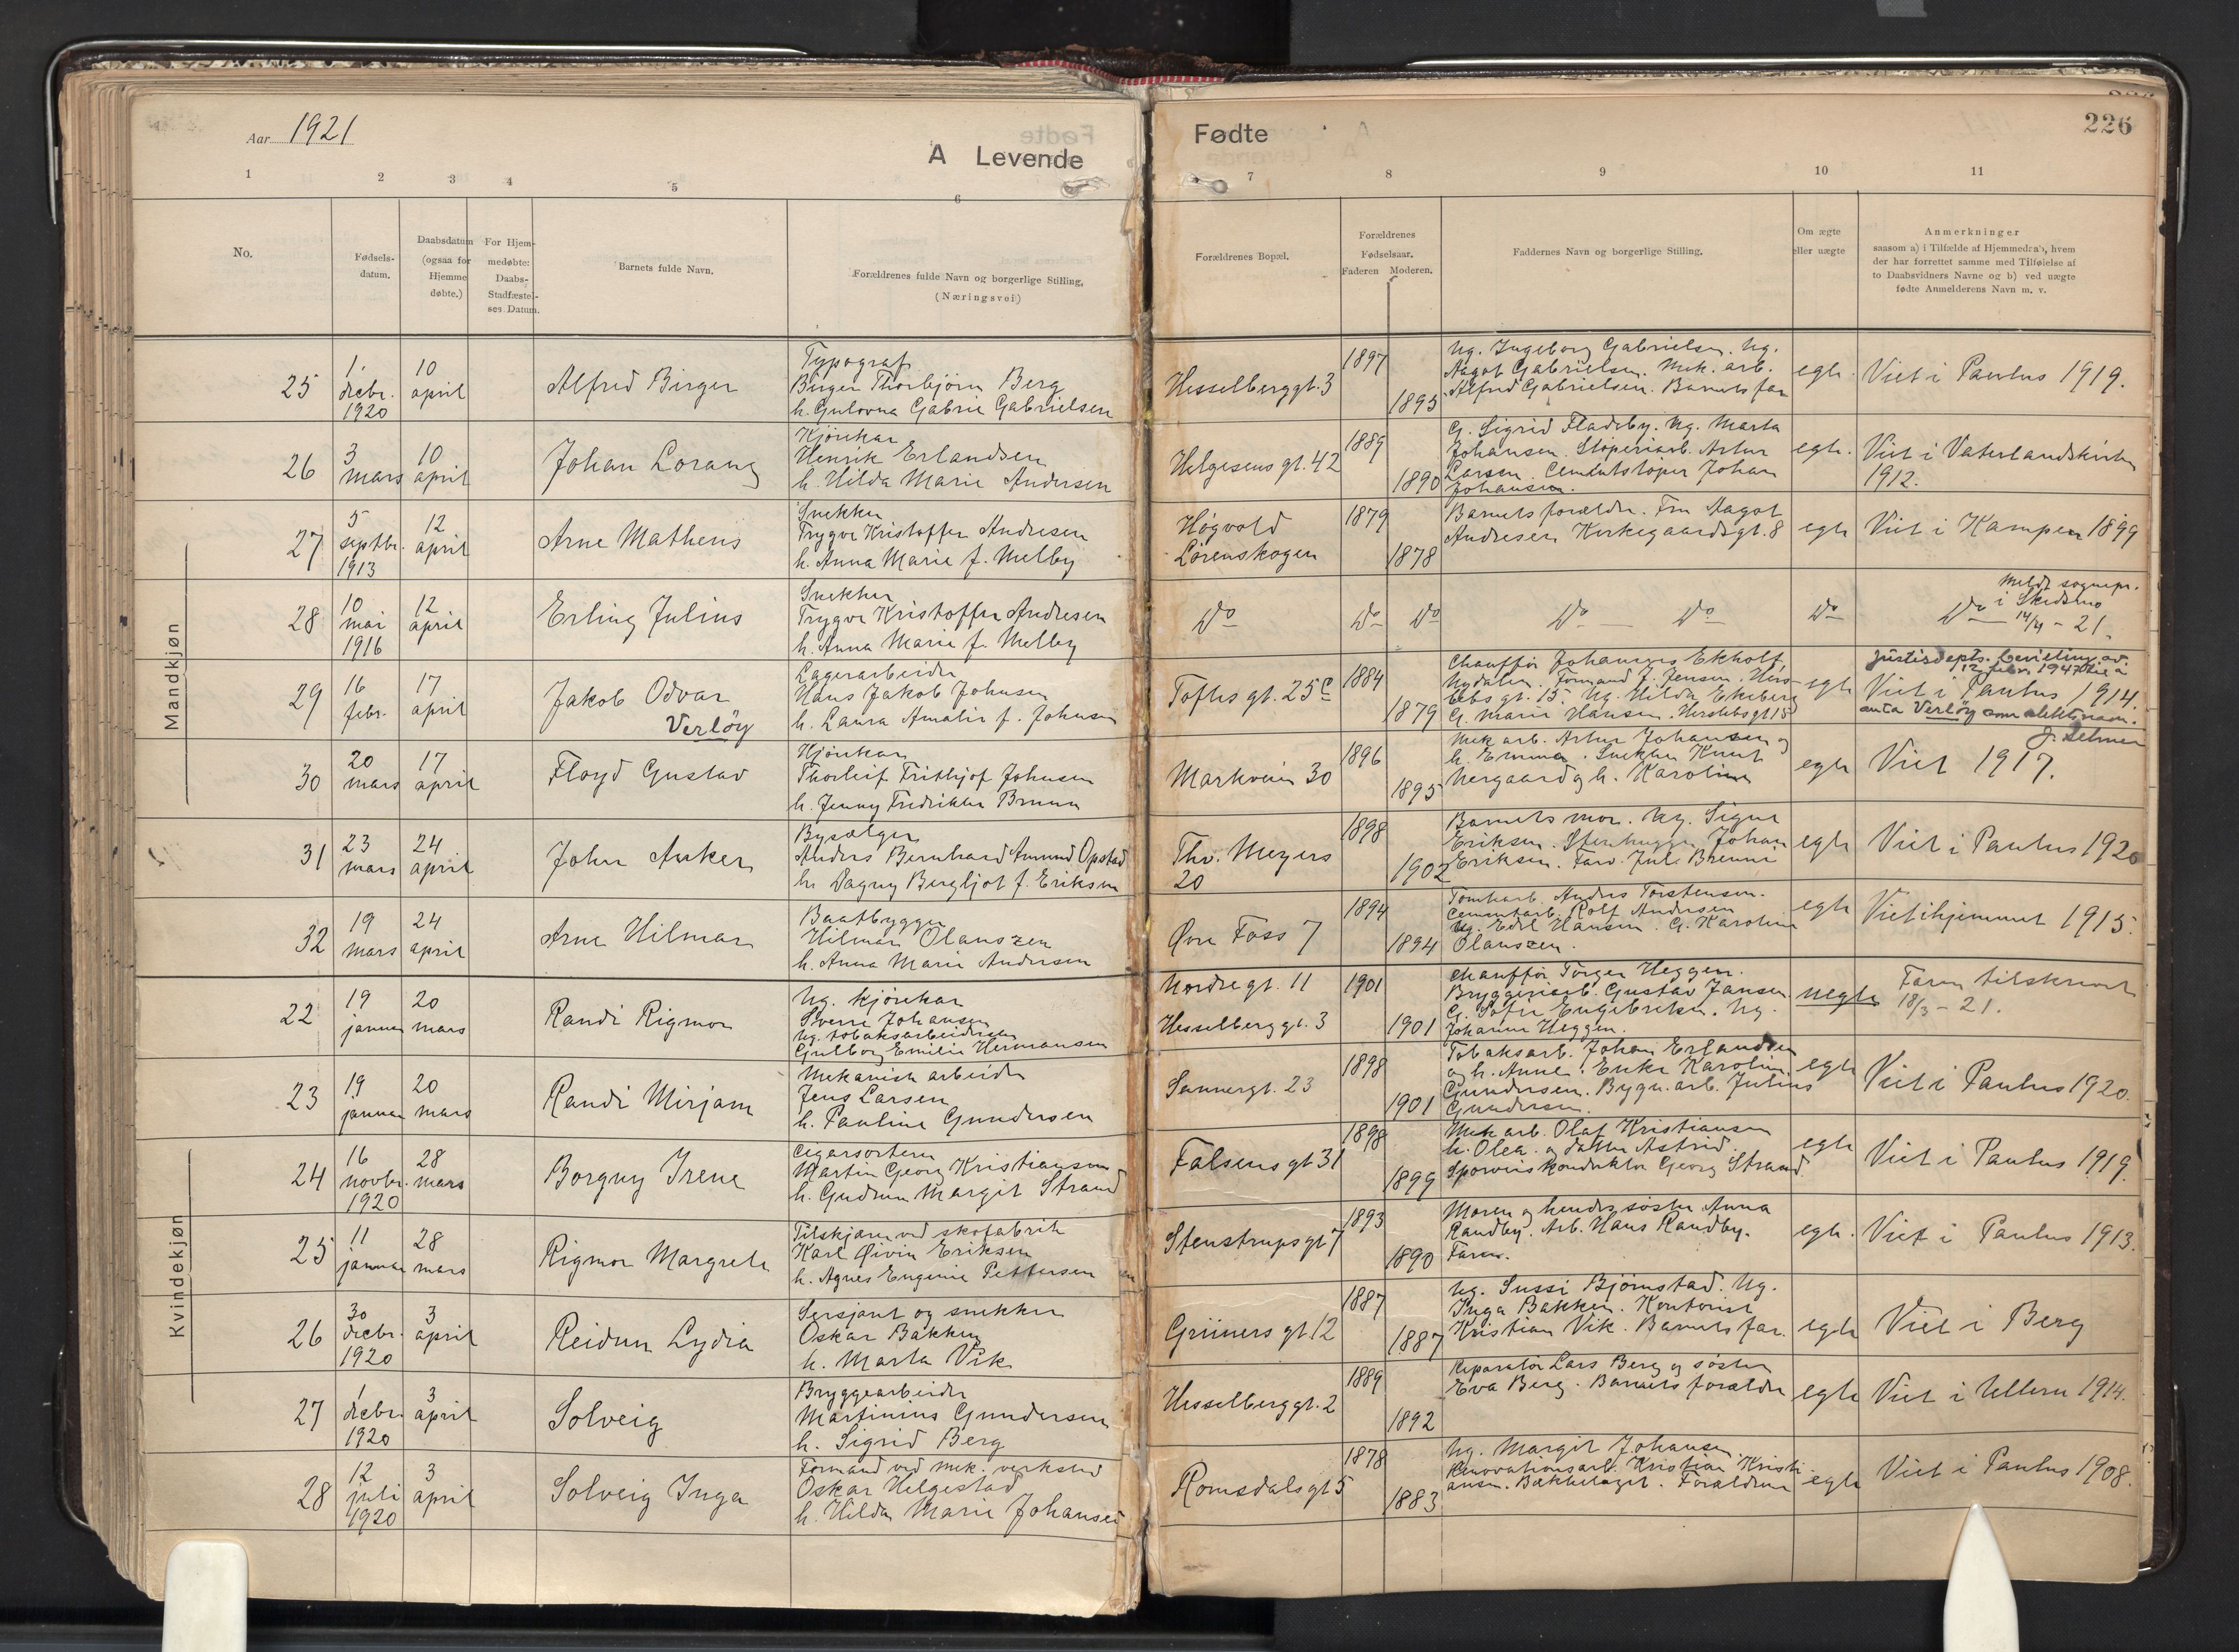 Aar 1921
A Levende
Fødte
226
1 2 3 4 5 6 7 8 9 10 11
No.
Fødsels-
datum.
Daabsdatum
(ogsaa for
Hjemme
døbte.)
For Hjem-
medøbte:
Daabs-
Stadfæstel-
ses Datum.
Barnets fulde Navn.
Forældrenes fulde Navn og borgerlige Stilling,
(Næringsvei)
Forældrenes Bopæl.
Forældrenes
Fødselsaar.
Faderen Moderen.
Faddernes Navn og borgerlige Stilling.
Om ægte
eller uægte
Anmerkninger
saasom a) i Tilfælde af Hjemmedaab, hvem
der har forrettet samme med Tilføielse af
to Daabsvidners Navne og b) ved uægte
fødte Anmelderens Navn m. v.
Mandkjøn
25
1.
decbr.
1920
10
april
Alfred Birger
Typograf
Birger Thorbjørn Berg
h. Gulovna Gabrie Gabrielsen
Hesselberggt. 3
1897
1895
Ug. Ingeborg Gabrielsen. Ug.
Aagot Gabrielsen. Mek. arb.
Alfred Gabrielsen. Barnets far
egte.
Viet i Paulus 1919.
26
3
mars
10
april
Johan Lorang
Kjørekar
Henrik Erlandsen
h. Hilda Marie Andersen
Helgesens gt. 42
1889
1890
G. Sigrid Fladeby. Ug. Marta
Johansen. Støperiarb. Artur
Larsen. Cementstøper Johan
Johansen.
egte.
Viet i Vaterlandskirken
1912.
27
5
septbr.
1913
12
april
Arne Matheus
Snekker
Trygve Kristoffer Andresen
h. Anna Marie f. Melby
Høgvold
Lørenskogen
1879
1878
Barnets forældre. Fru Aagot
Andresen Kirkegaardsgt. 8
egte
Viet i Kampen 1899
28
10
mai
1916
12
april
Erling Julius
Snekker
Trygve Kristoffer Andresen
h. Anna Marie f. Melby
Do
Do Do
Do — Do
Do
Do —
Meldt sognepr.
i Skedsmo
14/4 - 21.
29
16
febr.
17
april
Jakob Odvar
Verløy
Lagerarbeider
Hans Jakob Johnsen
h. Laura Amalie f. Johnsen
Toftes gt. 25c
1884
1879
Chauffør Johannes Ekholt,
Nydalen. Formand J. Jensen. Hers-
lebs gt. 15. Ug. Hilda Ekeberg
G. Marie Hansen. Herslebsgt 15
egte
Justisdepts. bevilling av
12 febr. 1947 til å
Viet i Paulus 1914.
anta Verløy som slektsnavn.
30
20
mars
17
april
Floyd Gustav
Kjørekar
Thorleif Frithjof Johnsen
h. Jenny Fredrikke Bruun
Markveien 30
1896
1895
Mek arb. Artur Johansen og
h. Emma. Snekker Knut
Nergaard og h. Karoline
egte
Viet 1917.
31
23
mars
24
april
John Anker
Bysælger
Anders Bernhard Amund Opstad
h. Dagny Bergljot f. Eriksen
Thv. Meyers
20
1898
1902
Barnets mor. Ug. Signe
Eriksen. Stenhugger Johan
Eriksen. Farv. Jul. Brenne
egte
Viet i Paulus 1920
32
19
mars
24
april
Arne Hilmar
Baatbygger
Hilmar Olaussen
h. Anna Marie Andersen
Øvre Foss 7
1894
1894
Tomtearb. Anders Torstensen.
Cementarb. Rolf Andersen
Ug. Edel Hansen. G. Karoline
Olaussen.
egte
Viet i hjemmet 1915.
Kvindekjøn
22
19
januar
20
mars
Randi Rigmor
Ug. kjørekar
Sverre Johansen
Ug. tobaksarbeiderske
Gulborg Emilie Hermansen
Nordre gt. 11
Hesselberggt. 3
1901
1901
Chauffør Torger Heggen.
Bryggeriarb. Gustav Jansen
G. Sofie Engebretsen. Ug.
Johanne Heggen.
uegte
Faren tilskrevet
18/3 - 21.
23
19
januar
20
mars
Randi Mirjam
Mekanisk arbeider
Jens Larsen
h. Pauline Gundersen
Sannergt. 23
1898
1901
Tobaksarb. Johan Erlandsen
og h. Anne. Enke Karoline
Gundersen. Bygn. arb. Julius
Gundersen.
egte
Viet i Paulus 1920.
24
16
novbr.
1920
28
mars
Borgny Irene
Cigarsorterer
Martin Georg Kristiansen
h. Gudrun Margit Strand
Falsens gt 31
1898
1899
Mek arb. Olaf Kristiansen
h. Olea. og datter Astrid.
Sporveiskonduktør Georg Strand.
egte
Viet i Paulus 1919.
25
11
januar
28
mars
Rigmor Margrete
Tilskjærer ved skofabrik
Karl Øivin Eriksen
h. Agnes Eugenie Pettersen
Stenstrupsgt 7
1893
1890
Moren og hendes søster Anna
Randby. Arb. Hans Randby.
Faren.
egte.
Viet i Paulus 1913.
26
30
decbr.
1920
3
april
Reidun Lydia
Sersjant og snekker
Oskar Bakken
h. Marta Vik
Grüners gt 12
1887
1887
Ug. Sussi Bjørnstad. Ug.
Inga Bakken. Kontorist
Kristian Vik. Barnets far.
egte
Viet i Berg
27
1
decbr.
1920
3
april
Solveig
Bryggearbeider
Martinius Gundersen
h. Sigrid Berg
Hesselberg gt. 2
1889
1892
Reparatør Lars Berg og søster
Eva Berg. Barnets forældre
egte
Viet i Ullern 1914.
28
12
juli
1920
3
april
Solveig Inga
Formand ved mek. verksted
Oskar Helgestad
h. Hilda Marie Johansen
Romsdalsgt 5
1878
1883
Ug. Margit Johansen.
Renovationsarb. Kristian Kristi-
ansen. Bækkelaget. Forældrene
egte
Viet i Paulus 1908.